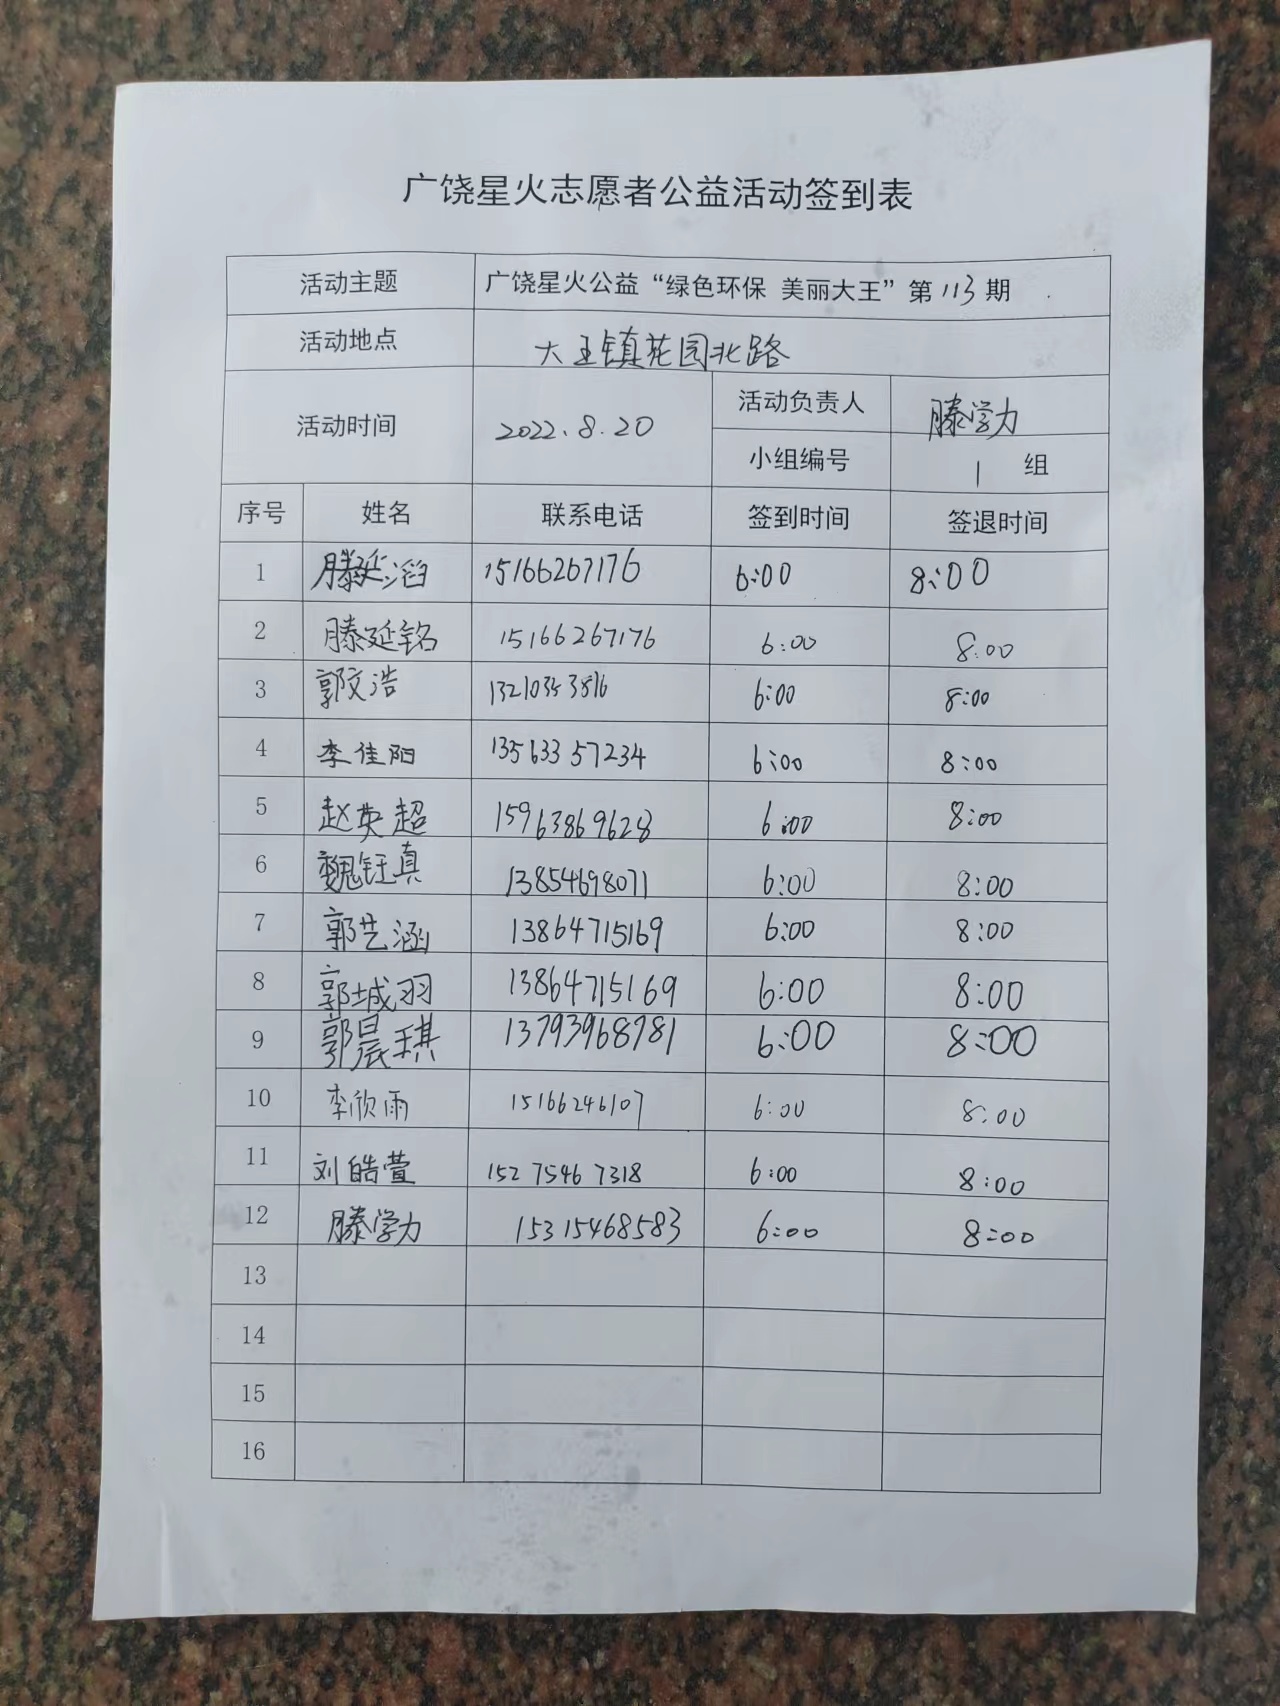 广饶星火志愿者公益活动签到表
活动主题 广饶星火公益“绿色环保 美丽大王”第113期
活动地点 大王镇花园北路
活动时间 2022.8.20 活动负责人 滕学力
小组编号 1 组
序号 姓名 联系电话 签到时间 签退时间
1 滕延滔 15166267176 6:00 8:00
2 滕延铭 15166267176 6:00 8:00
3 郭文浩 6:00 8:00
4 李佳阳 13563357234 6:00 8:00
5 赵英超 15963869628 6:00 8:00
6 魏钰真 13854698071 6:00 8:00
7 郭艺涵 13864715169 6:00 8:00
8 郭城羽 13864715169 6:00 8:00
9 郭晨琪 13793968781 6:00 8:00
10 李欣雨 15166246107 6:00 8:00
11 刘皓萱 15275467318 6:00 8:00
12 滕学力 15315468583 6:00 8:00
13
14
15
16